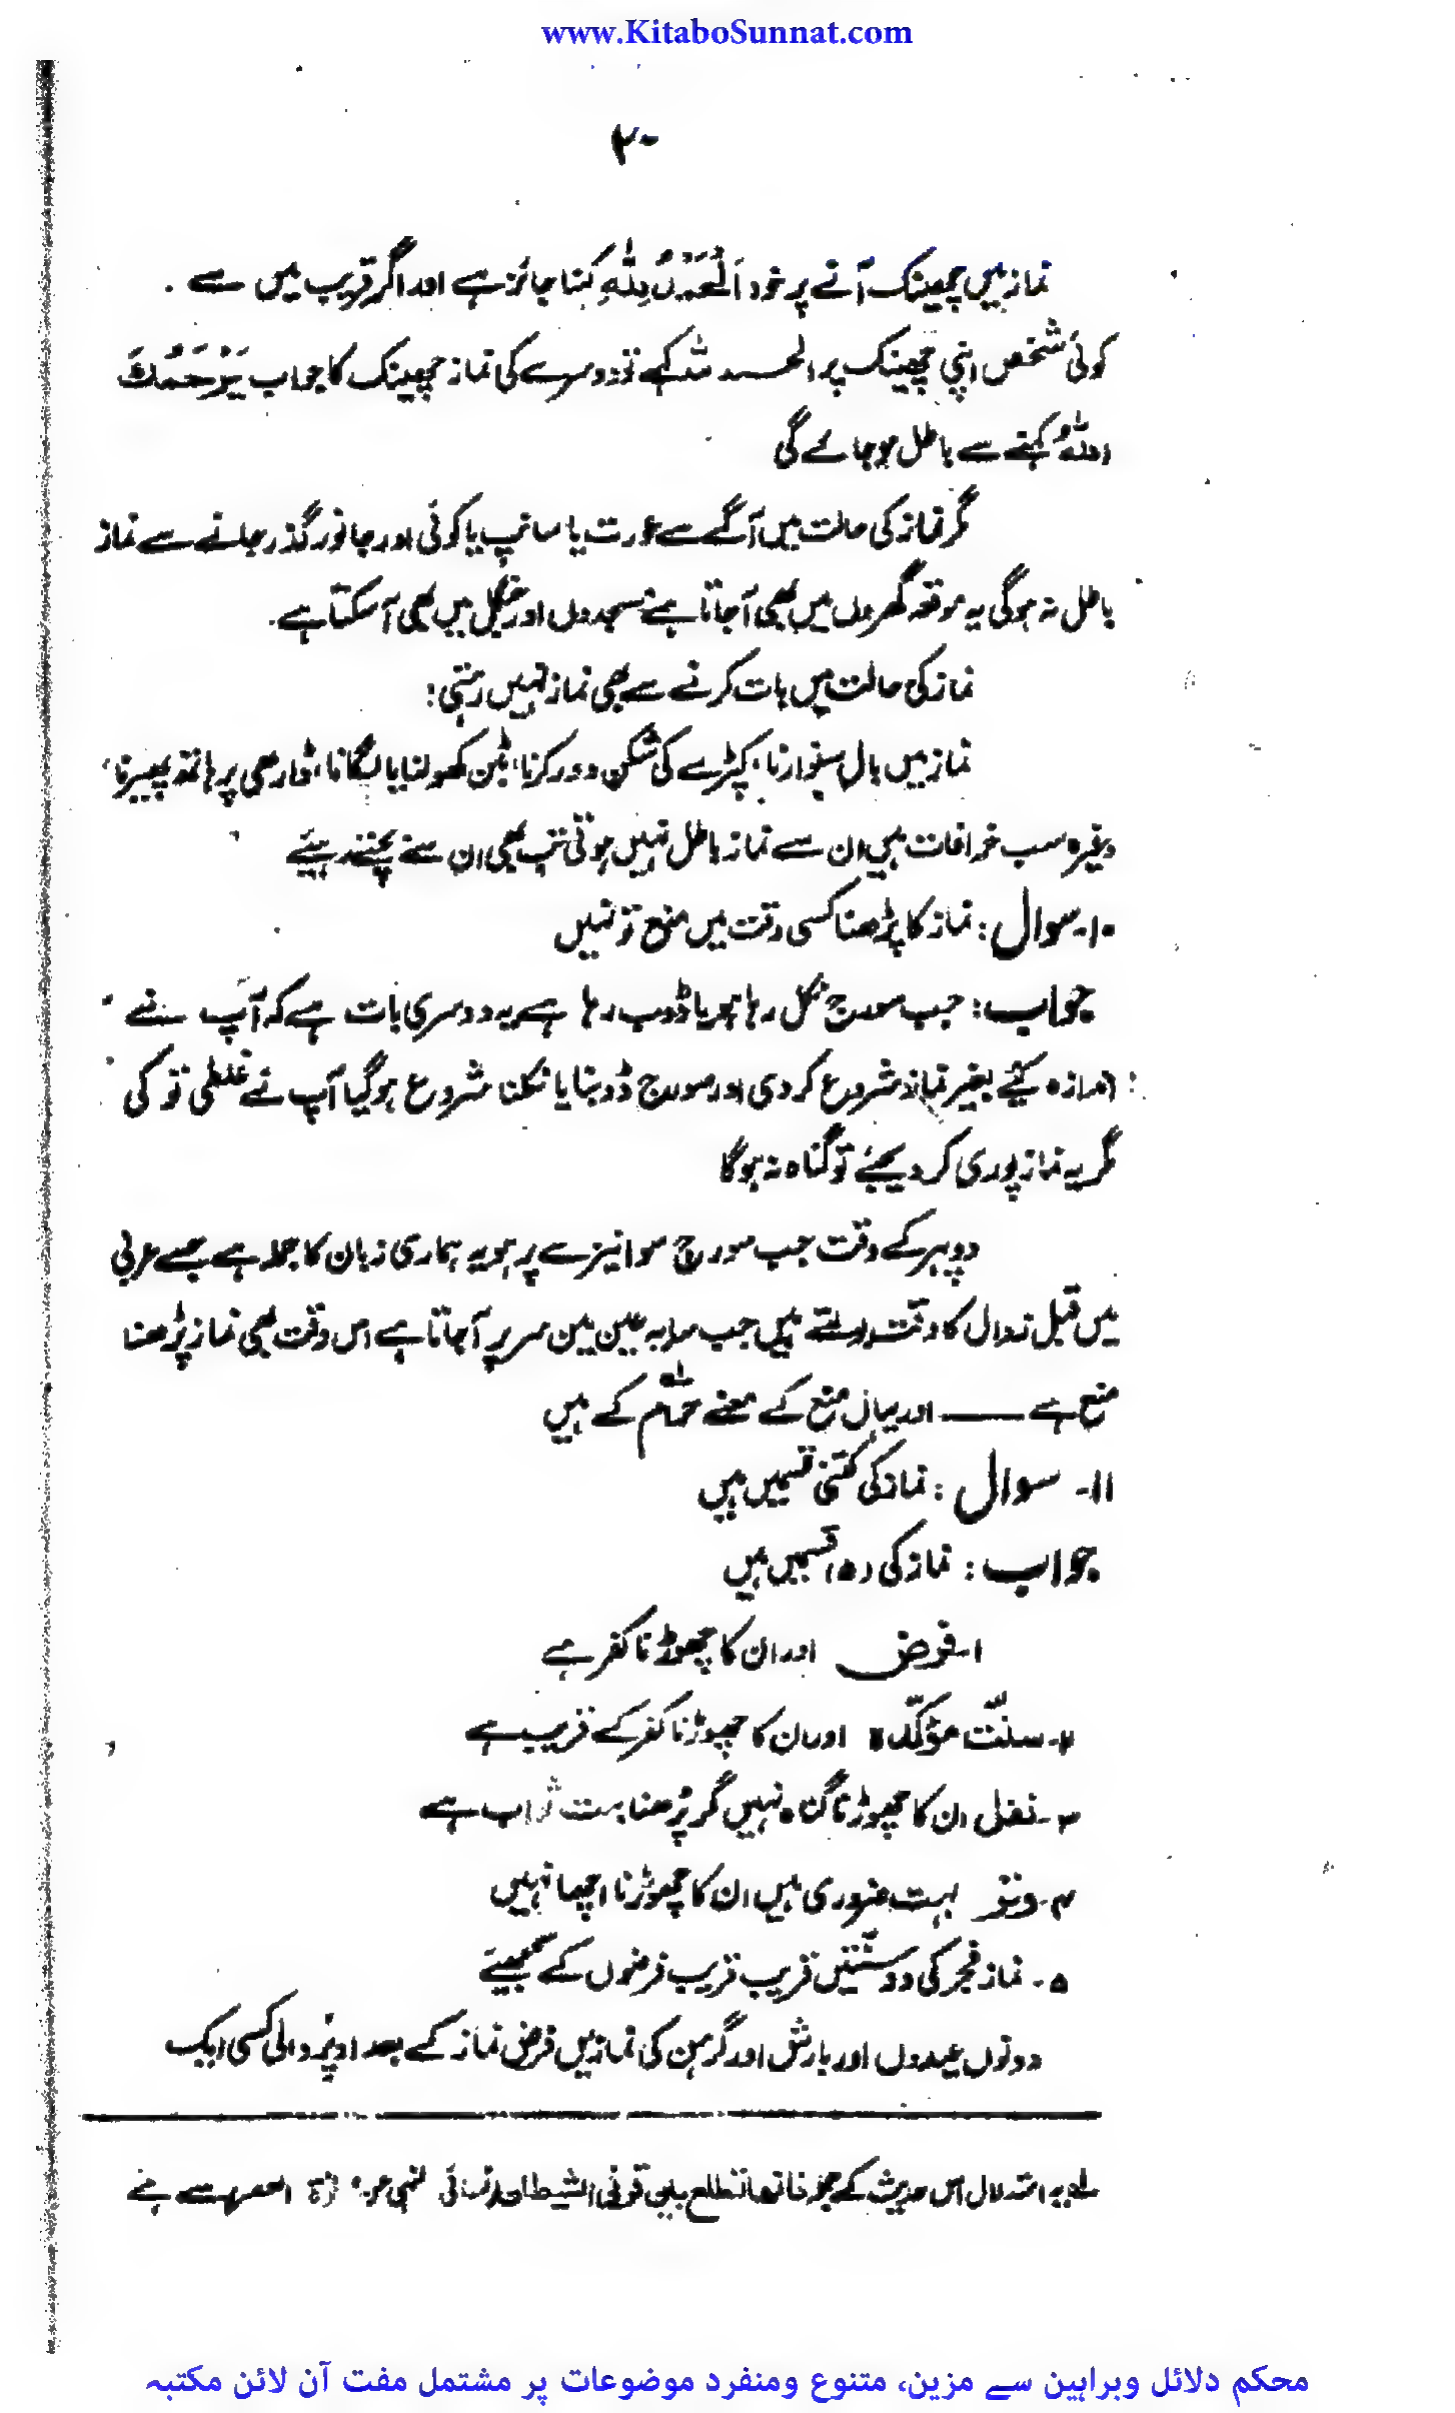 www.KitaboSunnat.com
۲۰
نماز میں چھینک آنے پر خود اَلْحَمْدُ لِلّٰہِ کہنا جائز ہے اور اگر قریب میں سے
کوئی شخص اپنی چھینک پر الحمد للہ کہے تو دوسرے کی نماز چھینک کا جواب یَرْحَمُکَ
اللّٰہُ کہنے سے باطل ہو جائے گی
مگر نماز کی حالت میں آگے سے عورت یا سانپ یا کوئی اور جانور گذر جانے سے نماز
باطل نہ ہوگی یہ موقعہ گھروں میں بھی آجاتا ہے مسجدوں اور جنگل میں بھی آسکتا ہے۔
نماز کی حالت میں بات کرنے سے بھی نماز نہیں رہتی:
نماز میں بال سنوارنا، کپڑے کی شکن دور کرنا، بٹن کھولنا یا لگانا، ڈارھی پر ہاتھ پھیرنا،
وغیرہ سب خرافات ہیں ان سے نماز باطل نہیں ہوتی تب بھی ان سے بچتے رہیئے
۱۰۔ سوال: نماز کا پڑھنا کسی وقت میں منع تو نہیں
جواب: جب سورج نکل رہا ہو یا ڈوب رہا ہے یہ دوسری بات ہے کہ آپ نے
اندازہ کیئے بغیر نماز شروع کر دی اور سورج ڈوبنا یا نکلنا شروع ہوگیا آپ نے غلطی تو کی
مگر یہ نماز پوری کر دیجئے تو گناہ نہ ہوگا
دوپہر کے وقت جب سورج سوا نیزے پر ہو یہ ہماری زبان کا جملہ ہے جسے عربی
میں قبل زوال کا وقت بولتے ہیں جب سایہ عین مین سر پر آجاتا ہے اس وقت بھی نماز پڑھنا
منع ہے ـــــ اور یہاں منع کے معنے حرام کے ہیں
۱۱۔ سوال: نماز کی کتنی قسمیں ہیں
جواب: نماز کی (۵) قسمیں ہیں
۱۔ فرض اور ان کا چھوڑنا کفر ہے
۲۔ سنّت مؤکّدہ اور ان کا چھوڑنا کفر کے قریب ہے
۳۔ نفل ان کا چھوڑنا گناہ نہیں مگر پڑھنا بہت ثواب ہے
۴۔ وتر بہت ضروری ہیں ان کا چھوڑنا اچھا نہیں
۵۔ نماز فجر کی دو سنّتیں قریب قریب فرضوں کے سمجھیئے
دونوں عیدوں اور بارش اور گرہن کی نمازیں فرض نماز کے بعد اوپر والی کسی ایک
یہ استدلال اس حدیث کے فانها تطلع بین قرنی الشیطان نسائی سے ہے
محکم دلائل وبراہین سے مزین، متنوع ومنفرد موضوعات پر مشتمل مفت آن لائن مکتبہ